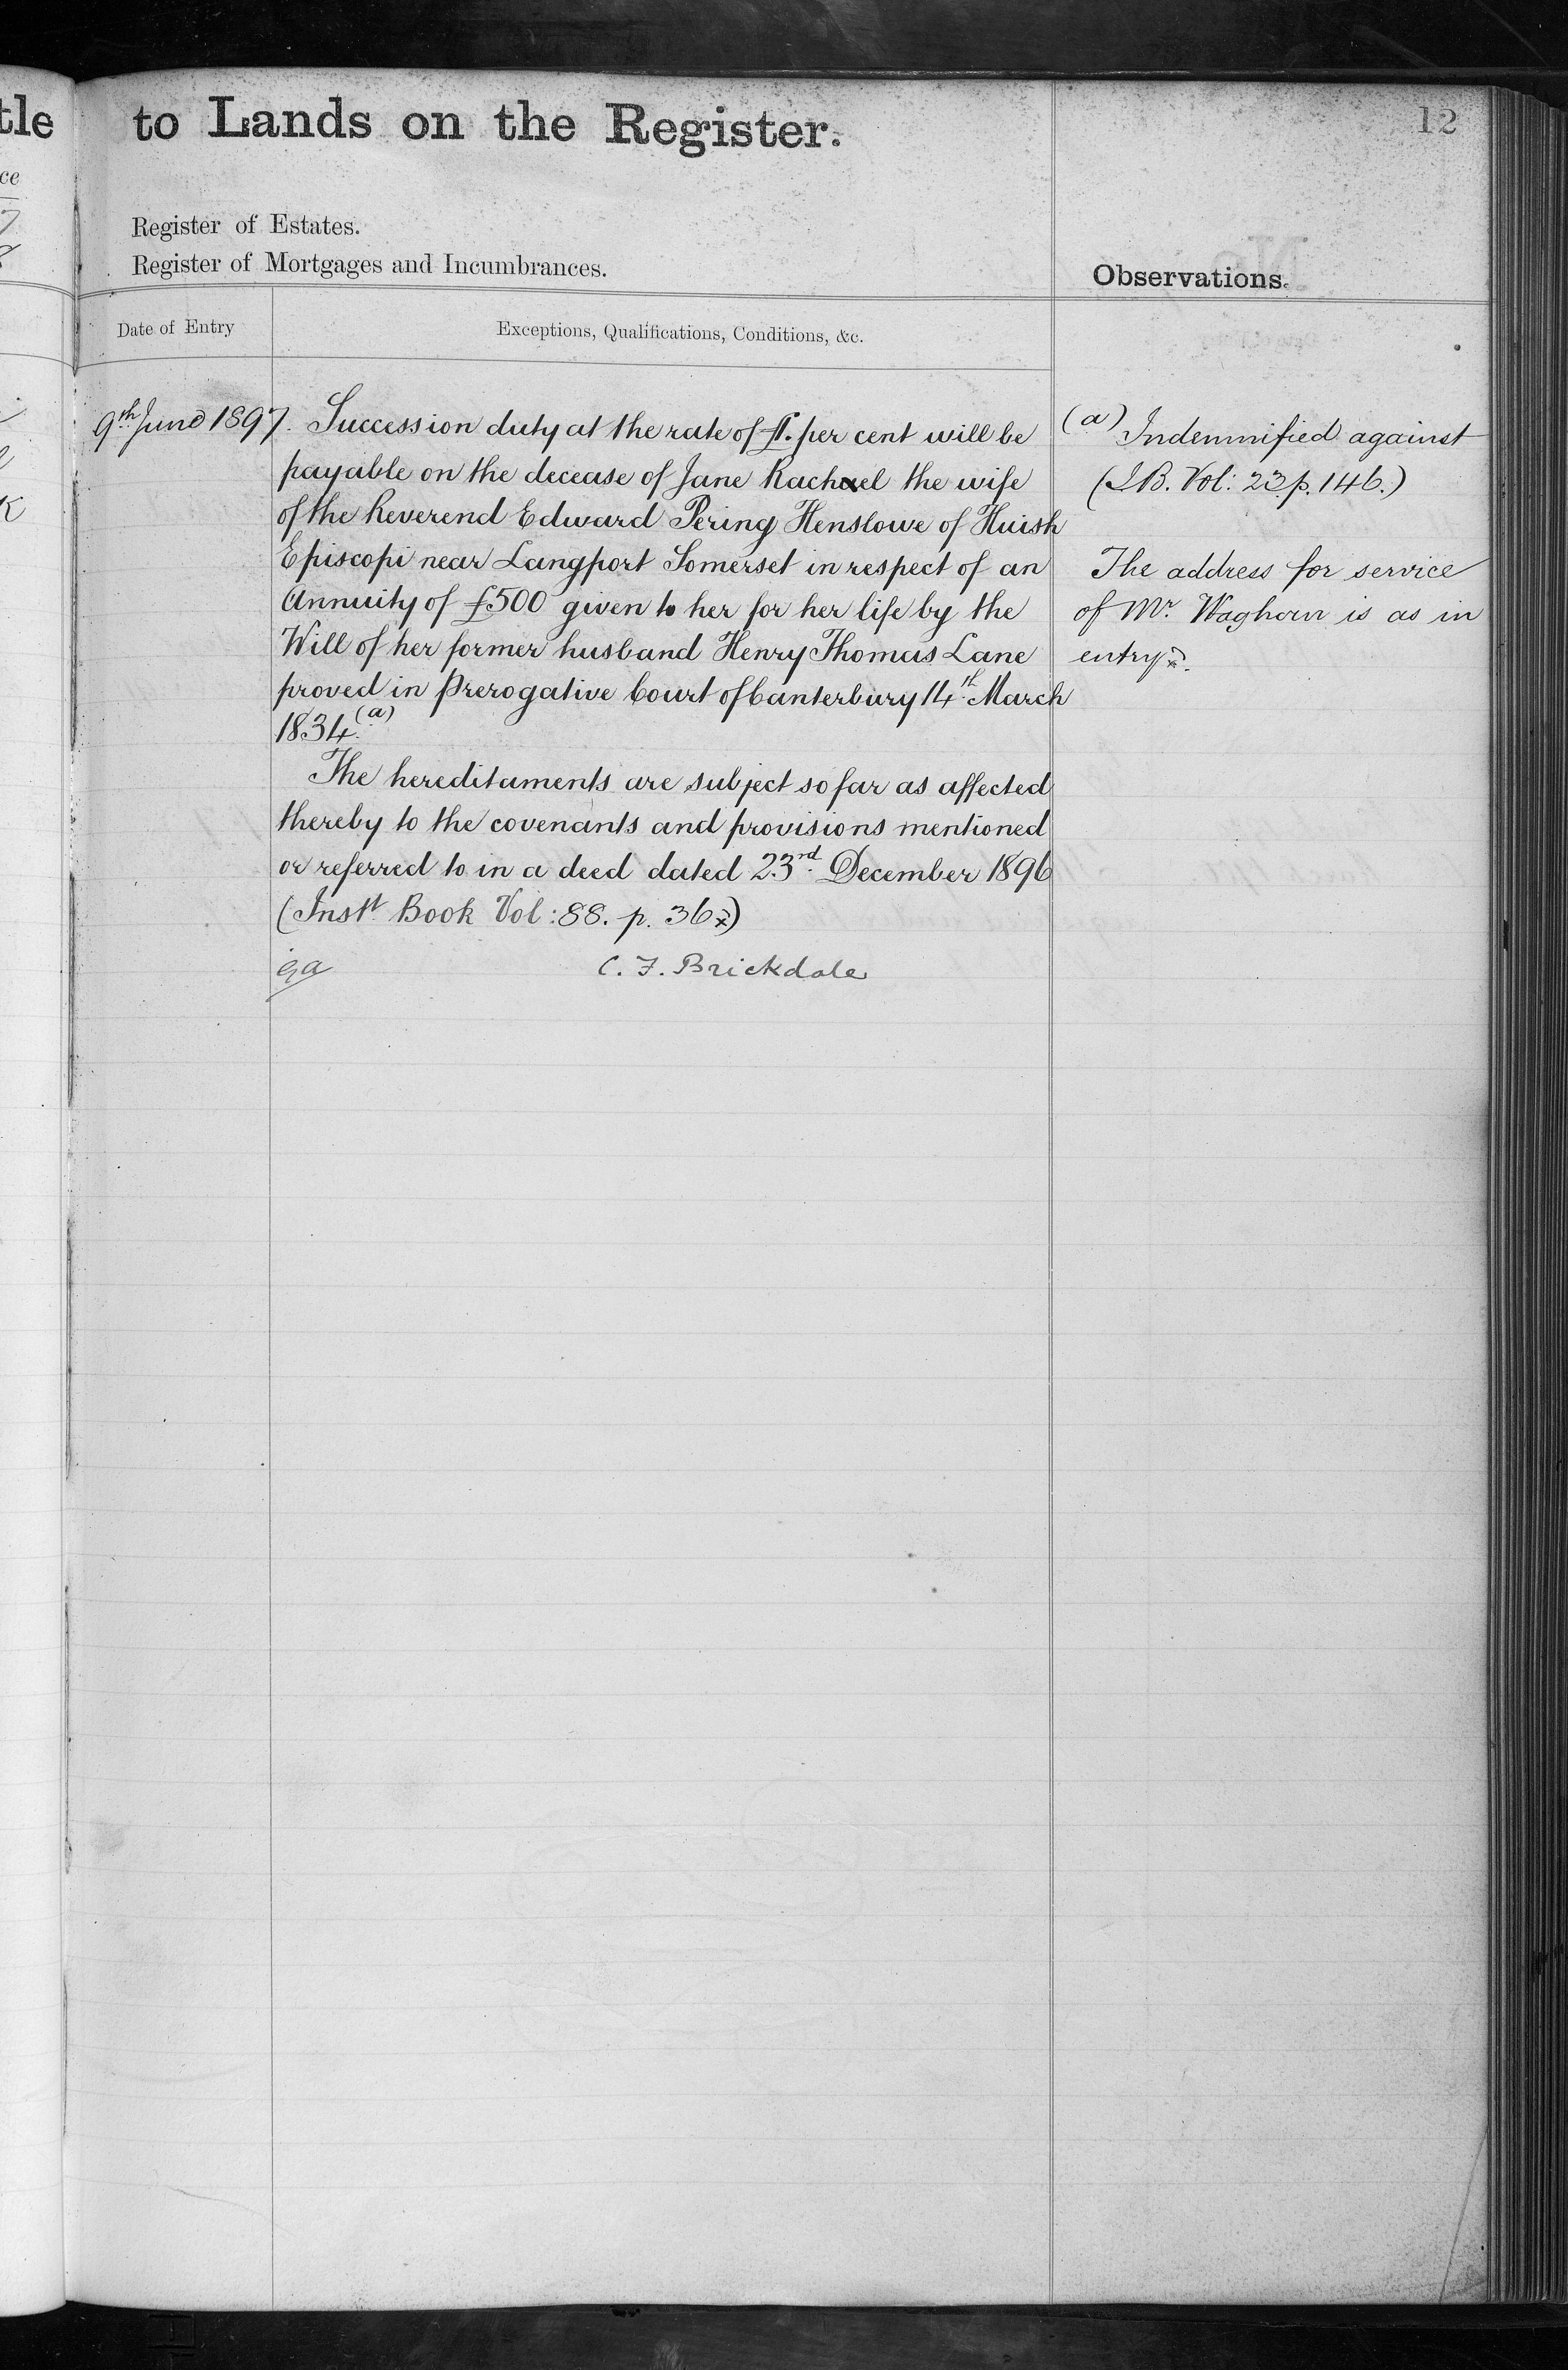 tle
ce
to Lands on the Register.
12
Register of Estates.
Register of Mortgages and Incumbrances.
Observations.
Date of Entry
Exceptions, Qualifications, Conditions, &c.
9th June 1897. Succession duty at the rate of £1. per cent will be
payable on the decease of Jane Rachael the wife
of the Reverend Edward Pering Henslowe of Huish
Episcopi near Langport Somerset in respect of an
Annuity of £500 given to her for her life by the
Will of her former husband Henry Thomas Lane
proved in Prerogative Court of Canterbury 14th March
1834. (a)
The hereditaments are subject so far as affected
thereby to the covenants and provisions mentioned
or referred to in a deed dated 23rd December 1896
(Instt Book Vol: 88. p. 36x)
C. F. Brickdale
(a) Indemnified against
(I.B. Vol: 23 p. 146.)
The address for service
of Mr. Waghorn is as in
entry